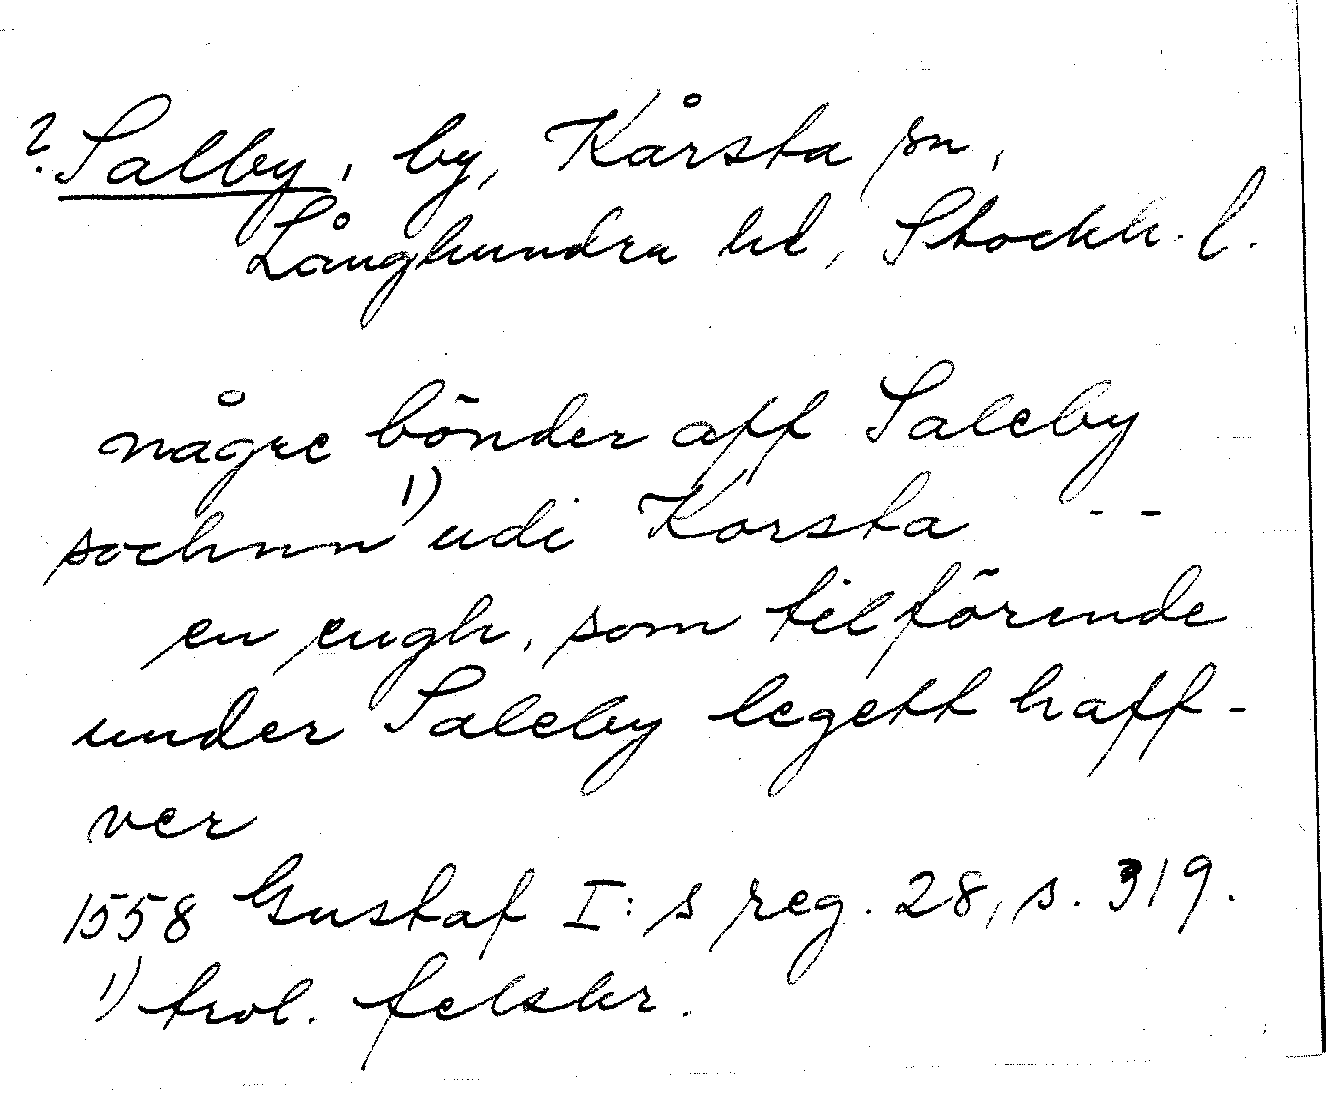 ? Salby, by, Kårsta sn,
Långhundra hd, Stockh. l.
någre bönder aff Saleby
sochnn 1) udi Korsta - -
en eugh, som tilförende
under Saleby legett haff-
ver
1558 Gustaf I:s reg. 28, s. 319.
1) trol. felskr.